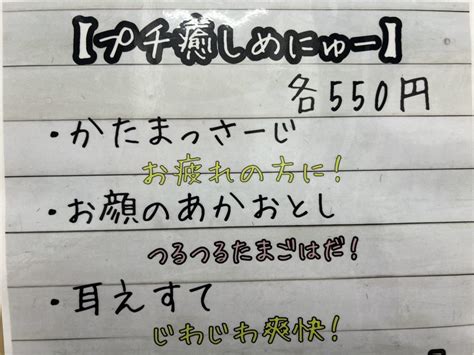 【プチ癒しめにゅー】
各550円
・かたまっさーじ
お疲れの方に!
・お顔のあかおとし
つるつるたまごはだ!
・耳えすて
じわじわ爽快!